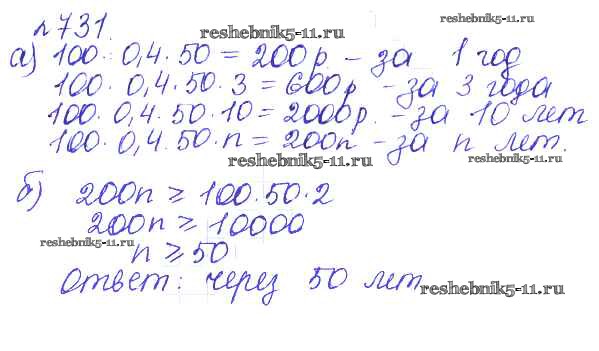 reshebnik5-11.ru
№731.
reshebnik5-11.ru
а) 100 · 0,4 · 50 = 200р. - за 1 год
100 · 0,4 · 50 · 3 = 600р - за 3 года
100 · 0,4 · 50 · 10 = 2000р. - за 10 лет
100 · 0,4 · 50 · n = 200n - за n лет.
reshebnik5-11.ru
reshebnik5-11.ru
б) 200n ≥ 100·50·2
200n ≥ 10000
reshebnik5-11.ru
n ≥ 50
Ответ: через 50 лет
reshebnik5-11.ru